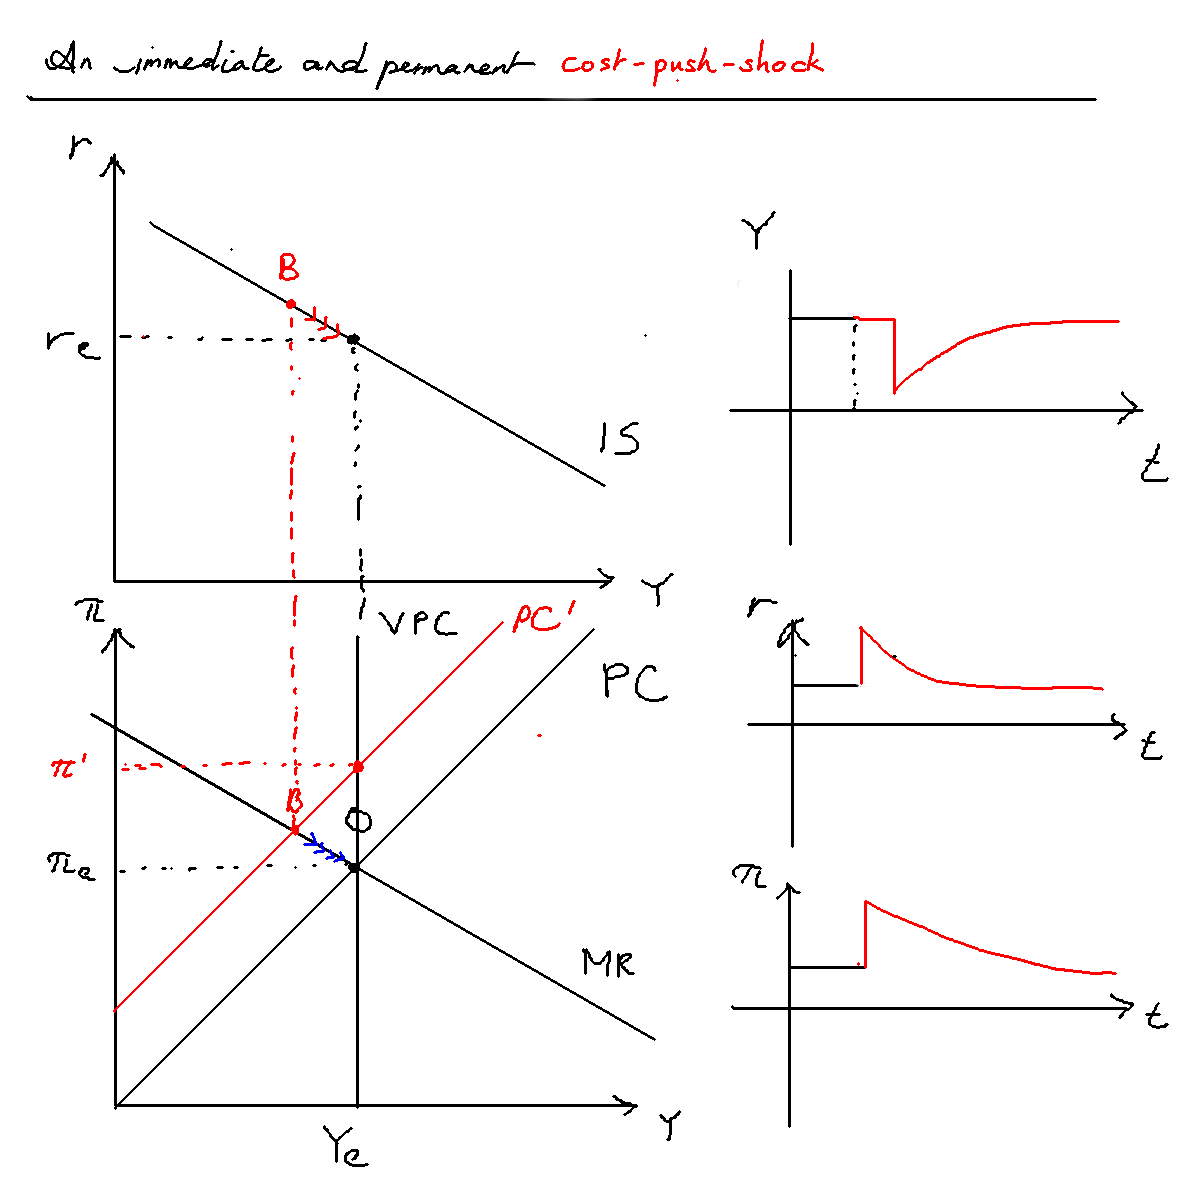 An immediate and permanent cost-push-shock
r
B
re
IS
Y
π
VPC
PC'
PC
π'
B
O
πe
MR
Ye
Y
Y
t
r
t
π
t